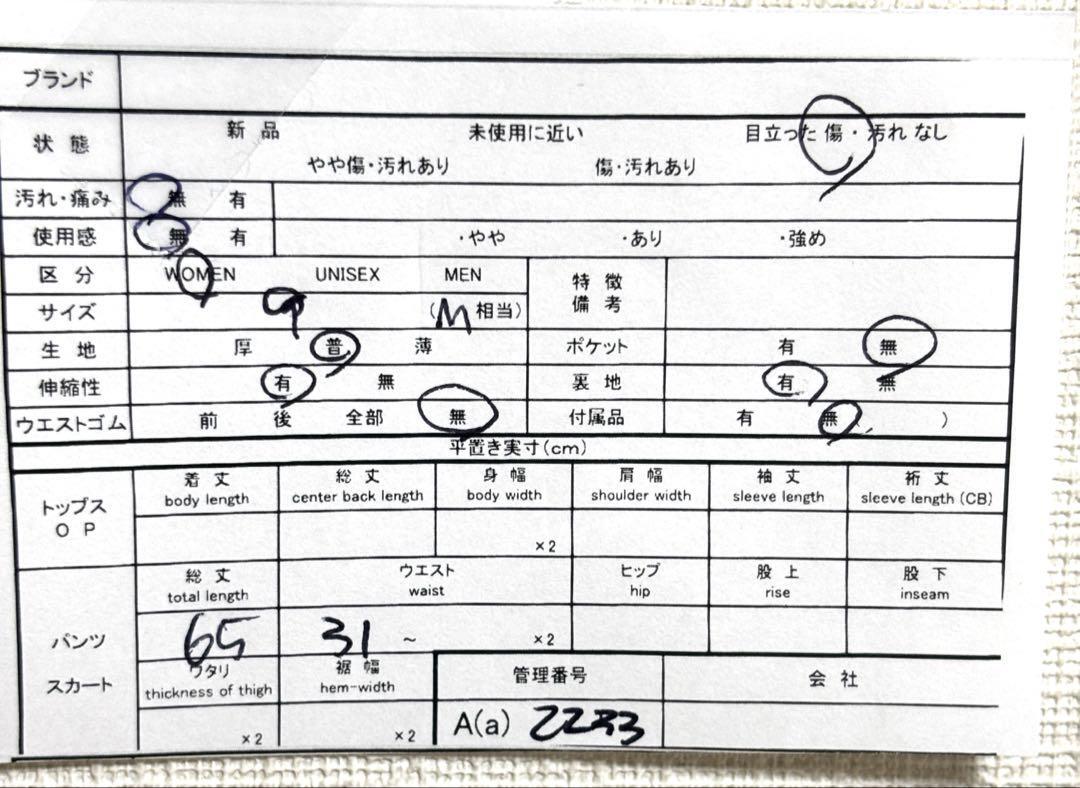 ブランド
状態 新品 未使用に近い 目立った傷・汚れなし
やや傷・汚れあり 傷・汚れあり
汚れ・痛み 無 有
使用感 無 有 ・やや ・あり ・強め
区分 WOMEN UNISEX MEN 特徴備考
サイズ 9 (M 相当)
生地 厚 普 薄 ポケット 有 無
伸縮性 有 無 裏地 有 無
ウエストゴム 前 後 全部 無 付属品 有 無 )
平置き実寸(cm)
トップス OP 着丈 総丈 身幅 肩幅 袖丈 裄丈
body length center back length body width shoulder width sleeve length sleeve length (CB)
×2
パンツ スカート 総丈 ウエスト ヒップ 股上 股下
total length waist hip rise inseam
65 31 ~ ×2
ワタリ 裾幅 管理番号 会社
thickness of thigh hem-width
×2 ×2 A(a) 2233